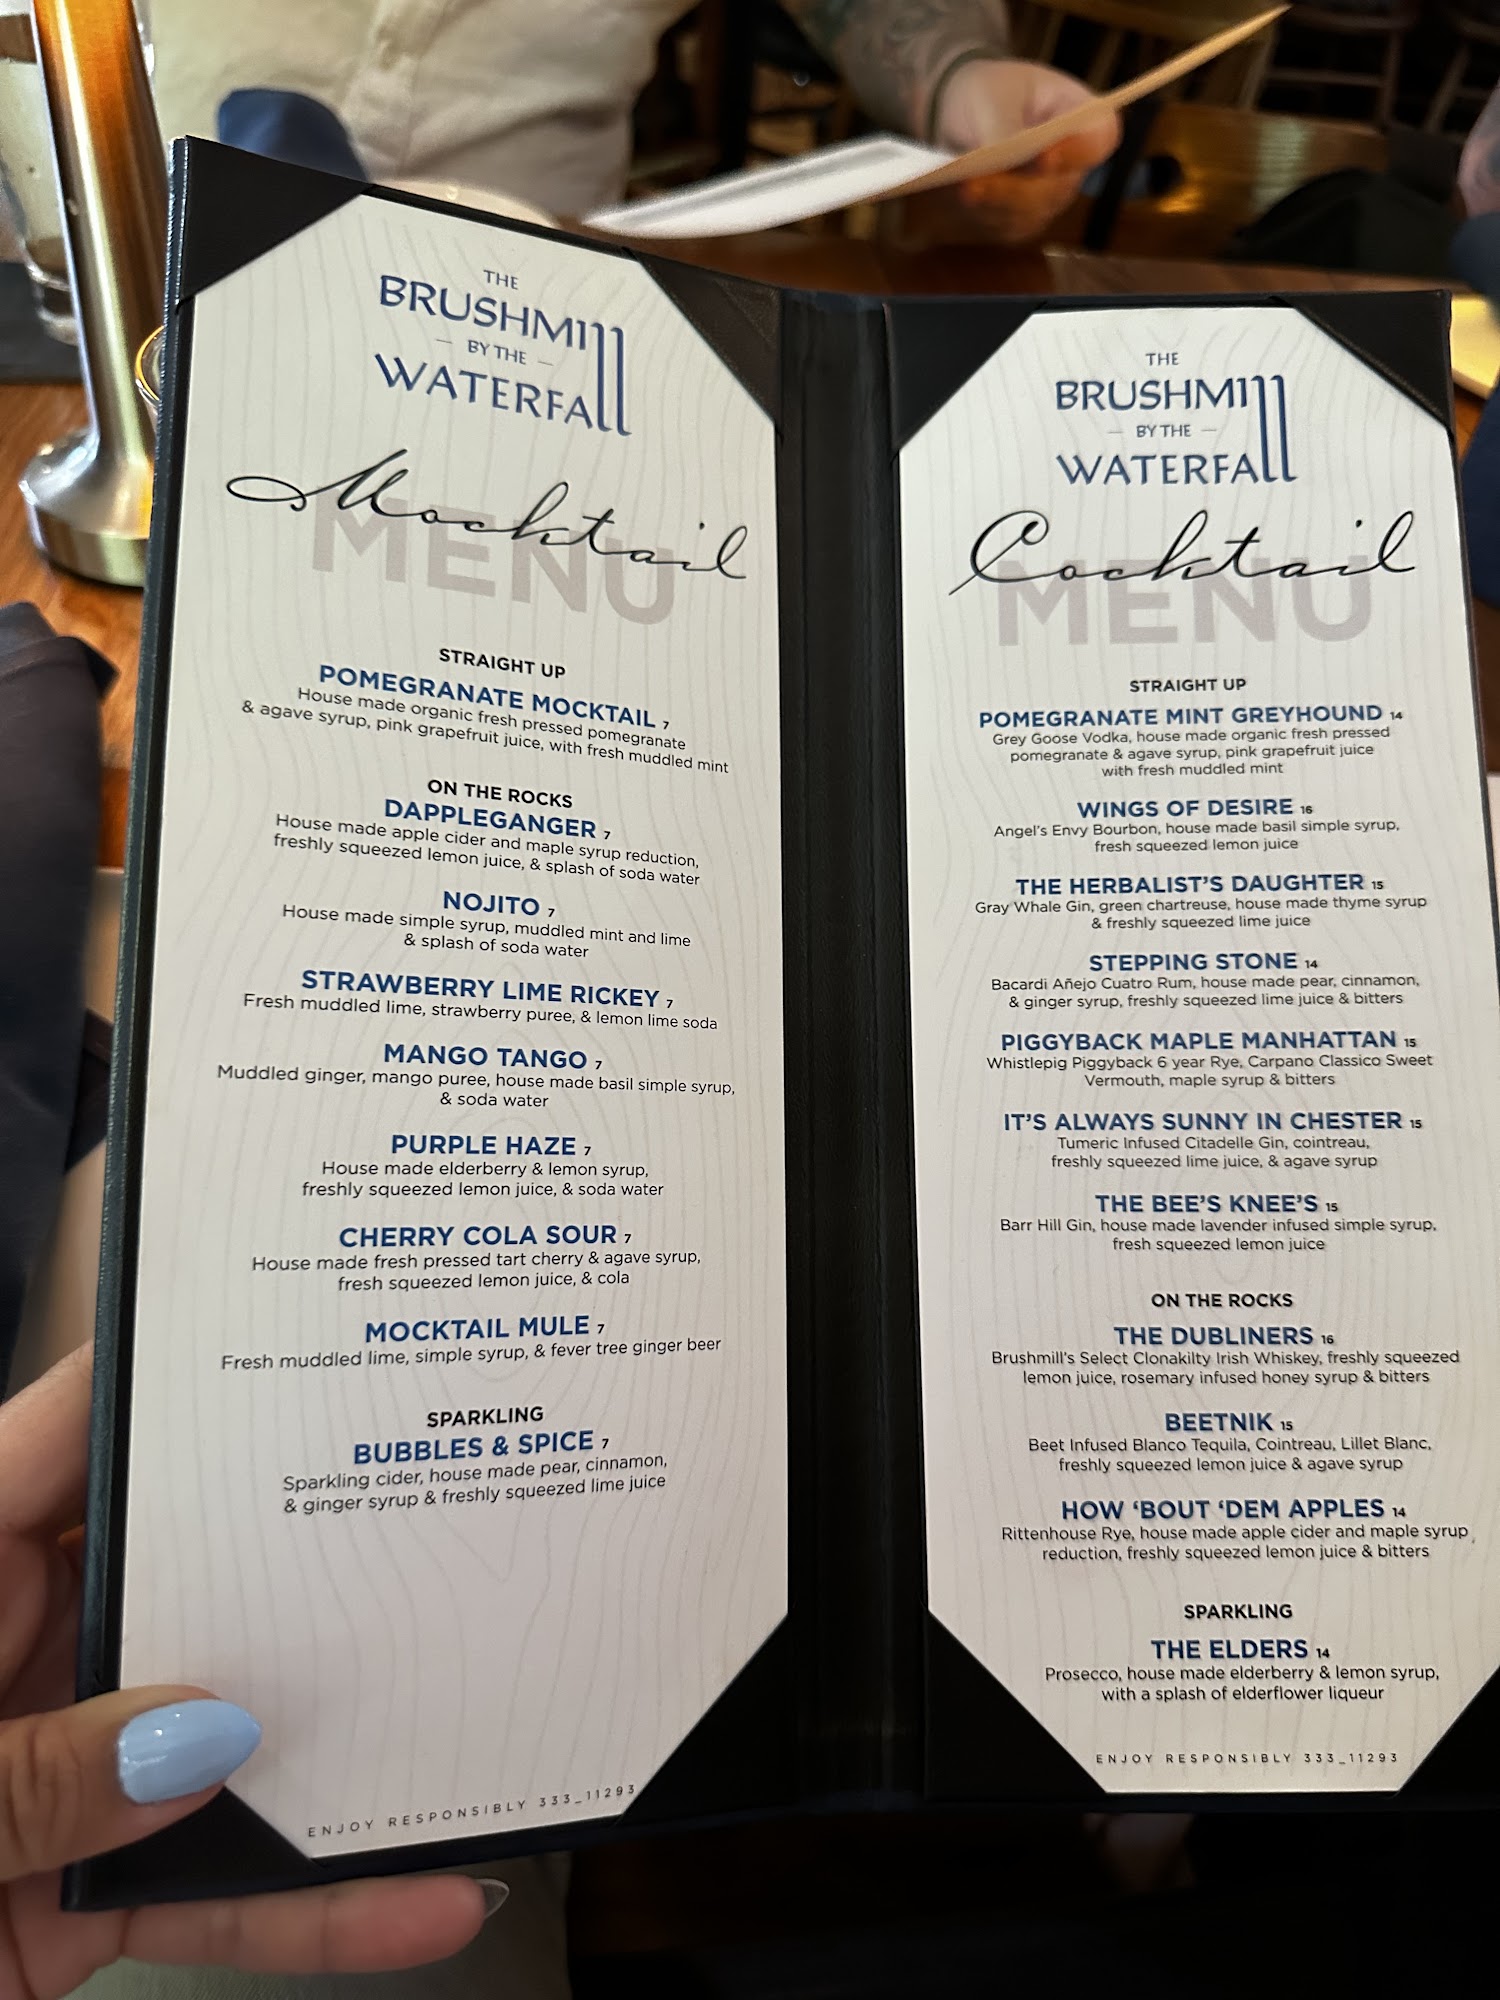 THE
BRUSHMILL
— BY THE —
WATERFALL
Mocktail
MENU
STRAIGHT UP
POMEGRANATE MOCKTAIL 7
House made organic fresh pressed pomegranate
& agave syrup, pink grapefruit juice, with fresh muddled mint
ON THE ROCKS
DAPPLEGANGER 7
House made apple cider and maple syrup reduction,
freshly squeezed lemon juice, & splash of soda water
NOJITO 7
House made simple syrup, muddled mint and lime
& splash of soda water
STRAWBERRY LIME RICKEY 7
Fresh muddled lime, strawberry puree, & lemon lime soda
MANGO TANGO 7
Muddled ginger, mango puree, house made basil simple syrup,
& soda water
PURPLE HAZE 7
House made elderberry & lemon syrup,
freshly squeezed lemon juice, & soda water
CHERRY COLA SOUR 7
House made fresh pressed tart cherry & agave syrup,
fresh squeezed lemon juice, & cola
MOCKTAIL MULE 7
Fresh muddled lime, simple syrup, & fever tree ginger beer
SPARKLING
BUBBLES & SPICE 7
Sparkling cider, house made pear, cinnamon,
& ginger syrup & freshly squeezed lime juice
ENJOY RESPONSIBLY 333_11293
THE
BRUSHMILL
— BY THE —
WATERFALL
Cocktail
MENU
STRAIGHT UP
POMEGRANATE MINT GREYHOUND 14
Grey Goose Vodka, house made organic fresh pressed
pomegranate & agave syrup, pink grapefruit juice
with fresh muddled mint
WINGS OF DESIRE 16
Angel's Envy Bourbon, house made basil simple syrup,
fresh squeezed lemon juice
THE HERBALIST'S DAUGHTER 15
Gray Whale Gin, green chartreuse, house made thyme syrup
& freshly squeezed lime juice
STEPPING STONE 14
Bacardi Añejo Cuatro Rum, house made pear, cinnamon,
& ginger syrup, freshly squeezed lime juice & bitters
PIGGYBACK MAPLE MANHATTAN 15
Whistlepig Piggyback 6 year Rye, Carpano Classico Sweet
Vermouth, maple syrup & bitters
IT'S ALWAYS SUNNY IN CHESTER 15
Tumeric Infused Citadelle Gin, cointreau,
freshly squeezed lime juice, & agave syrup
THE BEE'S KNEE'S 15
Barr Hill Gin, house made lavender infused simple syrup,
fresh squeezed lemon juice
ON THE ROCKS
THE DUBLINERS 16
Brushmill's Select Clonakilty Irish Whiskey, freshly squeezed
lemon juice, rosemary infused honey syrup & bitters
BEETNIK 15
Beet Infused Blanco Tequila, Cointreau, Lillet Blanc,
freshly squeezed lemon juice & agave syrup
HOW 'BOUT 'DEM APPLES 14
Rittenhouse Rye, house made apple cider and maple syrup
reduction, freshly squeezed lemon juice & bitters
SPARKLING
THE ELDERS 14
Prosecco, house made elderberry & lemon syrup,
with a splash of elderflower liqueur
ENJOY RESPONSIBLY 333_11293